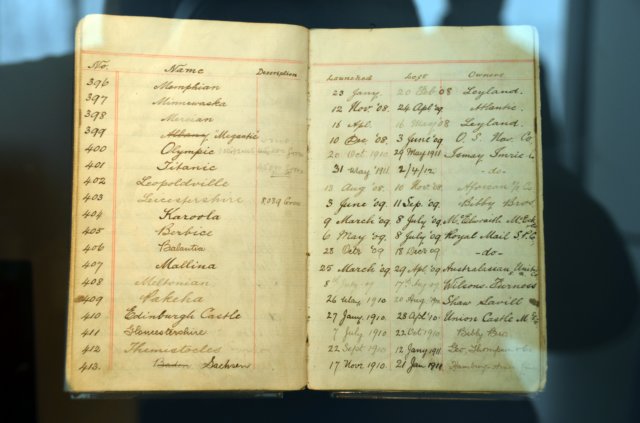 No. Name Description Launched Left Owners
396 Memphian 23 Jany. 20 Feb 08 Leyland.
397 Minnewaska 12 Nov '08. 24 Apl '09 Atlantic.
398 Mercian 16 Apl. 16 May '08 Leyland.
399 Albany Megantic 10 Dec '08. 3 June '09 O. S. Nav. Co.
400 Olympic 20 Oct. 1910 29 May 1911 Ismay Imrie
401 Titanic 31 May 1911. 2/4/12 -do-
402 Leopoldville 13 Aug '08. 10 Nov. '08
403 Leicestershire 8039 Gross 3 June '09 11 Sep. '09 Bibby Bros
404 Karoola 9 March '09 8 July '09
405 Berbice 6 May '09. 8 July '09 Royal Mail S.P.C.
406 Balantia 28 Dec '09 -do-
407 Mallina 25 March '09 29 Apl. '09 Australasian
408 Meltonian 8th July -09 17th Aug -09 Wilsons Furness
409 Pakeha 26 May 1910 20 Aug Shaw Savill
410 Edinburgh Castle 27 Jany. 1910 28 Apl '10 Union Castle
411 Gloucestershire 7 July 1910 22 Oct 1910 Bibby Bros
412 Themistocles 22 Sept 1910 12 Jany 1911 Geo. Thompson
413. Baden Sachsen 17 Novr 1910 21 Jan 1911